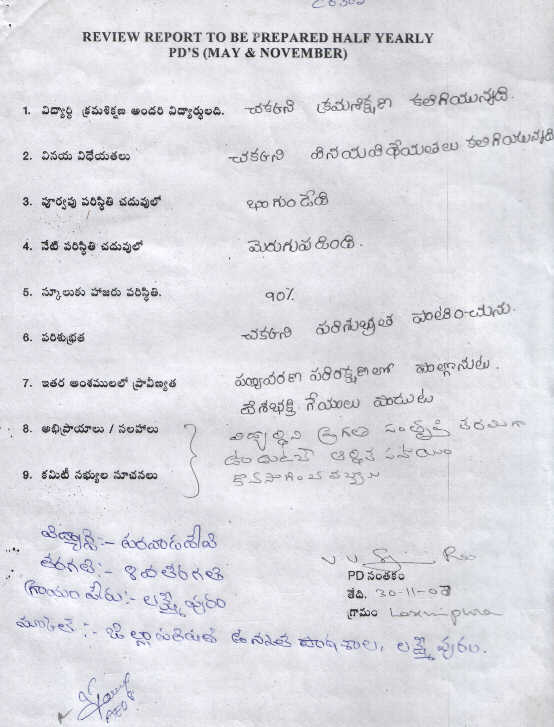 REVIEW REPORT TO BE PREPARED HALF YEARLY
PD'S (MAY & NOVEMBER)
1. విద్యార్థి క్రమశిక్షణ అందరి విద్యార్థులది. చక్కని క్రమశిక్షణ కలిగియున్నది.
2. వినయ విధేయతలు చక్కని వినయవిధేయతలు కలిగియున్నది
3. పూర్వపు పరిస్థితి చదువులో బాగుండేది
4. నేటి పరిస్థితి చదువులో మెరుగుపడింది.
5. స్కూలుకు హాజరు పరిస్థితి. 90%
6. పరిశుభ్రత చక్కని పరిశుభ్రత పాటించును.
7. ఇతర అంశములలో ప్రావీణ్యత పర్యావరణ పరిరక్షణలో పాల్గొనుట.
దేశభక్తి గేయాలు పాడుట
8. అభిప్రాయాలు / సలహాలు విద్యార్థిని ప్రగతి సంతృప్తి కరముగా
ఉండుటచే ఆర్థిక సహాయం
9. కమిటీ సభ్యుల సూచనలు కొనసాగించ వచ్చును
తరగతి:- 8వ తరగతి
గ్రామం పేరు:- లక్ష్మీపురం
జిల్లా పరిషత్ ఉన్నత పాఠశాల, లక్ష్మీపురం.
PD సంతకం
తేది. 30-11-07
గ్రామం Laxmipuram